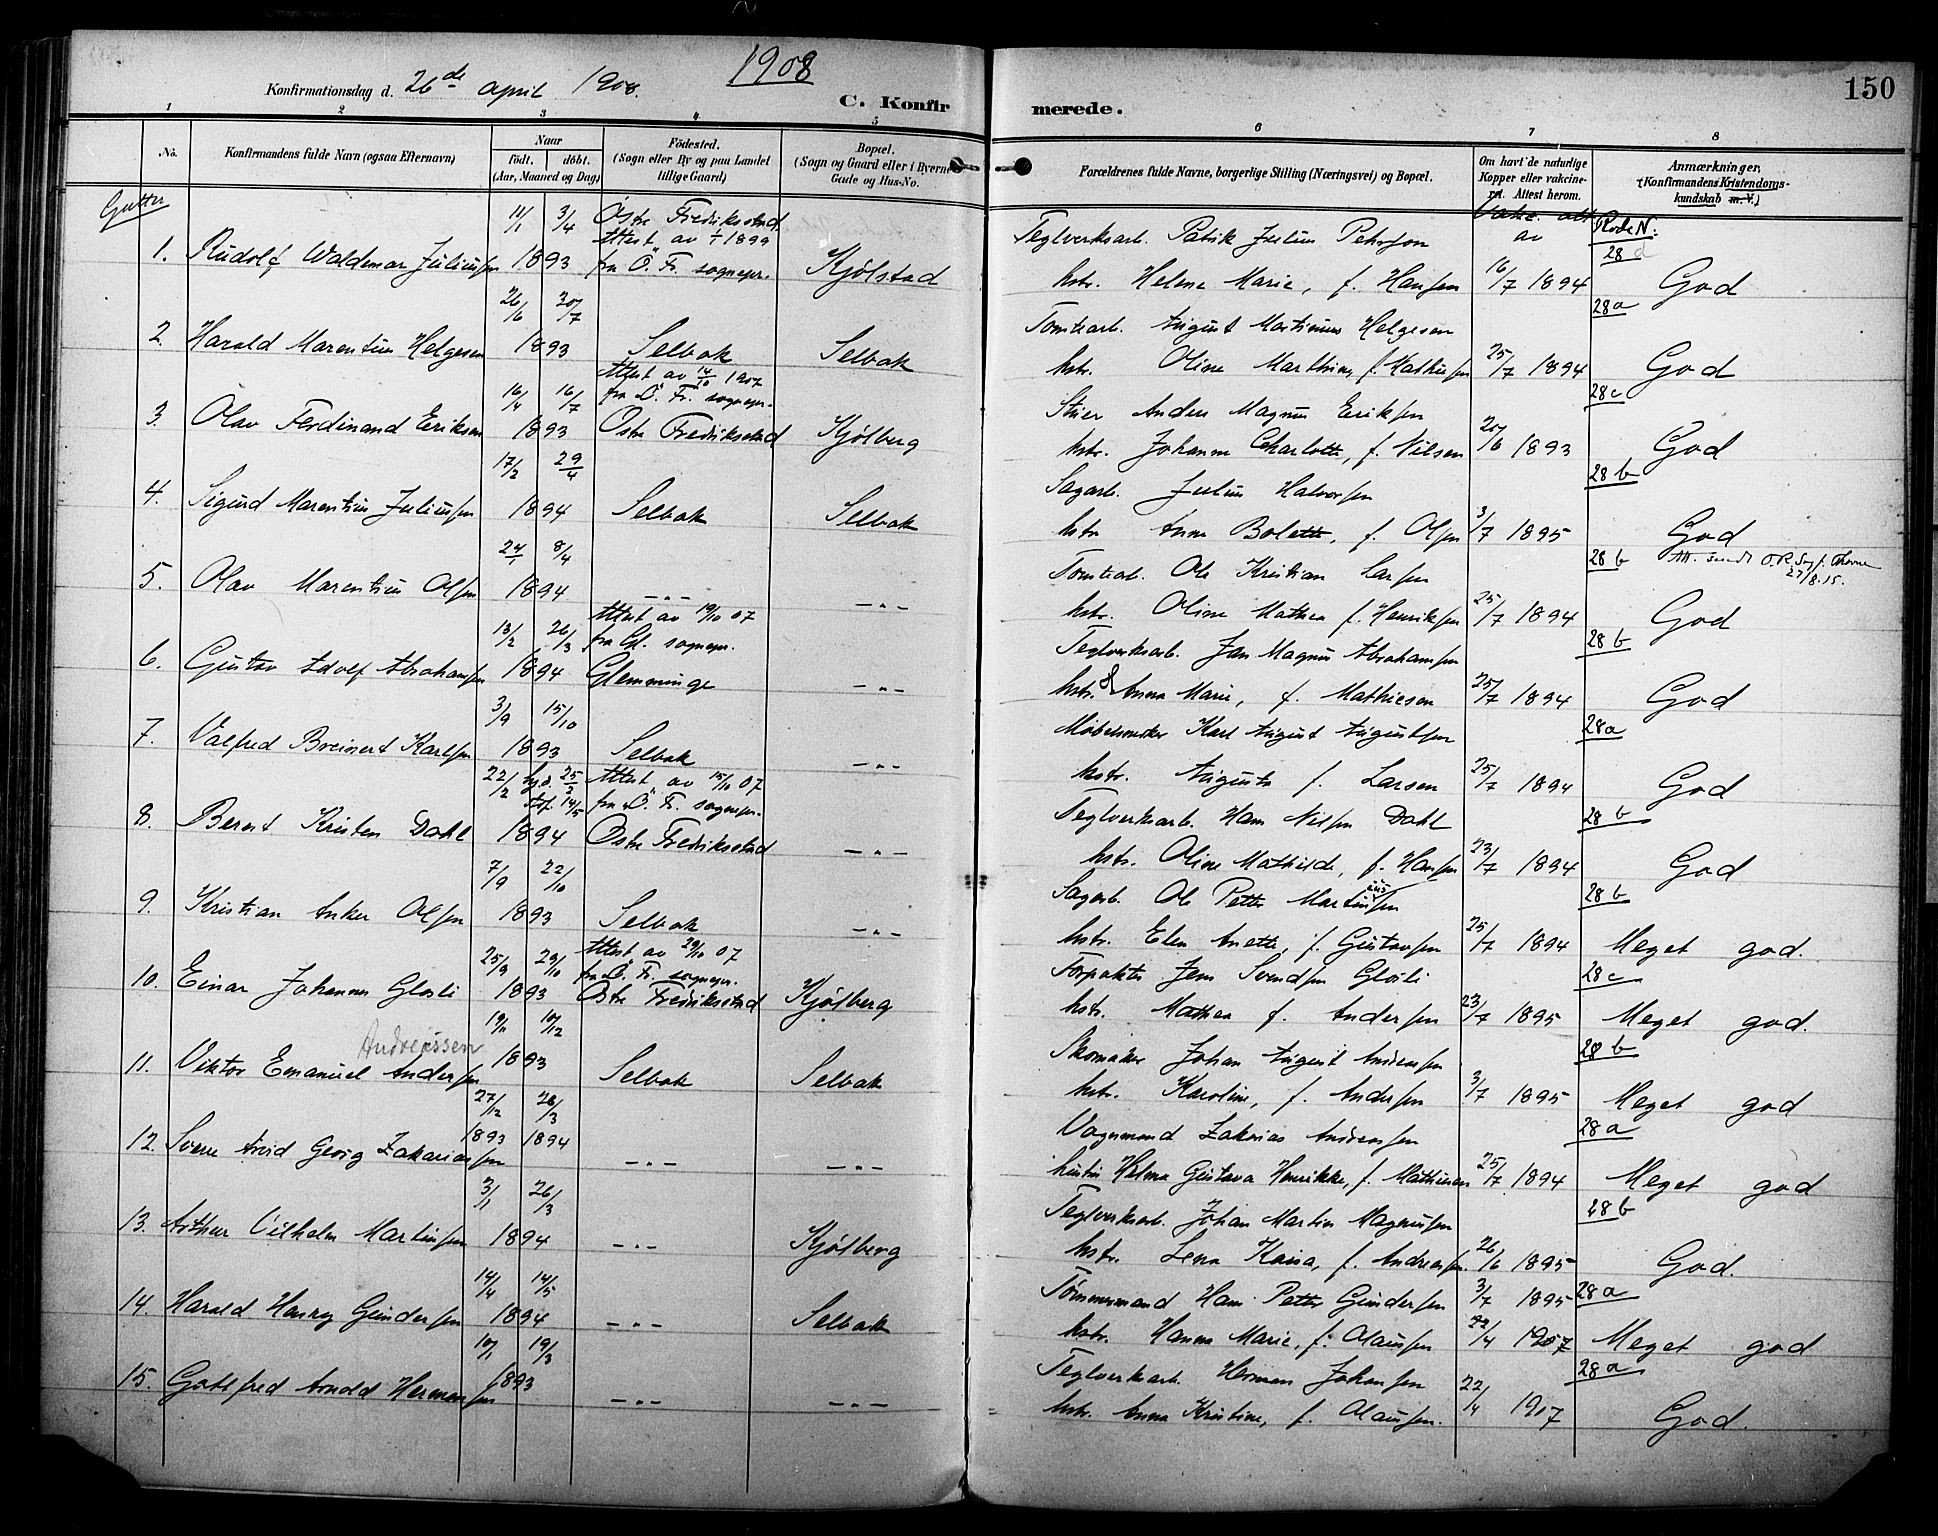 1908
150
Konfirmationsdag d. 26de april 1908.
C. Konfirmerede.
1 2 3 4 5 6 7 8
No.
Konfirmandens fulde Navn (ogsaa Efternavn)
Naar
født. døbt.
(Aar, Maaned og Dag)
Fødested.
(Sogn eller By og paa Landet
tillige Gaard)
Bopæl.
(Sogn og Gaard eller i Byerne
Gade og Hus-No.
Forældrenes fulde Navne, borgerlige Stilling (Næringsvei) og Bopæl.
Om havt de naturlige
Kopper eller vakcine-
ret. Attest herom.
Anmærkninger.
(Konfirmandens Kristendoms-
kundskab m. V.)
Gutter
Vakc. att. av
Rode N:
1. Rudolf Waldemar Juliussen 11/1 1893 3/4 Østre Fredriksstad Attest av 1/1 1899 fra Ø. Fr. sognepr. Kjølstad
Teglverksarb. Patrik Julius Pehrson
hstr. Helene Marie, f. Hansen 16/7 1894 28 d God
2. Harald Marentius Helgesen 26/6 1893 30/7 Selbak Selbak
Tomtearb. August Martinius Helgesen
hstr. Oline Marthine, f. Mathisen 25/7 1894 28a God
3. Olav Ferdinand Eriksen 16/4 1893 16/7 Attest av 14/10 1907 fra Ø. Fr. sognepr. Østre Fredriksstad Kjølberg
Stuer Anders Magnus Eriksen
hstr. Johanne Charlotte, f. Nilsen 20/6 1893 28c God
4. Sigurd Marentius Juliussen 17/2 1894 29/4 Selbak Selbak
Sagarb. Julius Halvorsen
hstr. Anna Bolette, f. Olsen 3/7 1895 28 b God
5. Olav Marentius Olsen 24/1 1894 8/4 -"- -"-
Tomtearb. Ole Kristian Larsen
hstr. Oline Mathea f. Henriksen 25/7 1894 28 b God
27/8.15.
6. Gustav Adolf Abrahamsen 13/2 1894 26/3 Attest av 19/10 07 fra Gl. sognepr. Glemminge -"-
Teglverksarb. Jan Magnus Abrahamsen
hstr. Anna Marie, f. Mathiesen 25/7 1894 28 b God
7. Valfred Breinert Karlsen 3/9 1893 15/10 Selbak -"-
Møbelsnekker Karl August Augustsen
hstr. Augusta f. Larsen 25/7 1894 28a God
8. Bernt Kristen Dahl 22/2 1894 hjd. 25/2 stf. 14/5 Attest av 15/10 07 fra Ø. Fr. sognepr. Østre Fredriksstad -"-
Teglverksarb. Hans Nilsen Dahl
hstr. Oline Mathilde, f. Hansen 23/7 1894 28 b God
9. Kristian Anker Olsen 7/9 1893 22/10 Selbak -"-
Sagarb. Ole Petter Martinsen
hstr. Elen Anette, f. Gustavsen 25/7 1894 28 b Meget god.
10. Einar Johannes Glosli 25/9 1893 29/10 Attest av 29/10 07 fra Ø. Fr. sognepr. Østre Fredriksstad Kjølberg
Forpakter Jens Svendsen Glosli
hstr. Mathea f. Andersen 23/7 1895 28c Meget god.
Andreassen
11. Viktor Emanuel Andersen 19/11 1893 10/12 Selbak Selbak
Skomaker Johan August Andreassen
hstr. Karoline, f. Andersen 3/7 1895 28 b Meget god
12. Sverre Arvid Georg Zakariassen 27/12 1893 26/3 1894 -"- -"-
Vognmand Zakarias Andreassen
hustru Helma Gustava Henrikke, f. Mathiesen 25/7 1894 28a Meget god
13. Arthur Vilhelm Martinsen 3/1 1894 26/3 -"- Kjølberg
Teglverksarb. Johan Martin Magnussen
hstr. Lena Kaisa, f. Andreassen. 26/6 1895 28 b God.
14. Harald Henry Gundersen 14/4 1894 14/5 -"- Selbak
Tømmermand Hans Petter Gundersen 3/7 1895 28a
hstr. Hanna Marie, f. Olaussen 22/4 1907 Meget god
15. Gottfred Arnold Hermansen 10/1 1893 19/3 -"- -"-
Teglverksarb. Herman Johansen
hstr. Anna Kristine, f. Olaussen. 22/4 1907 28a God.